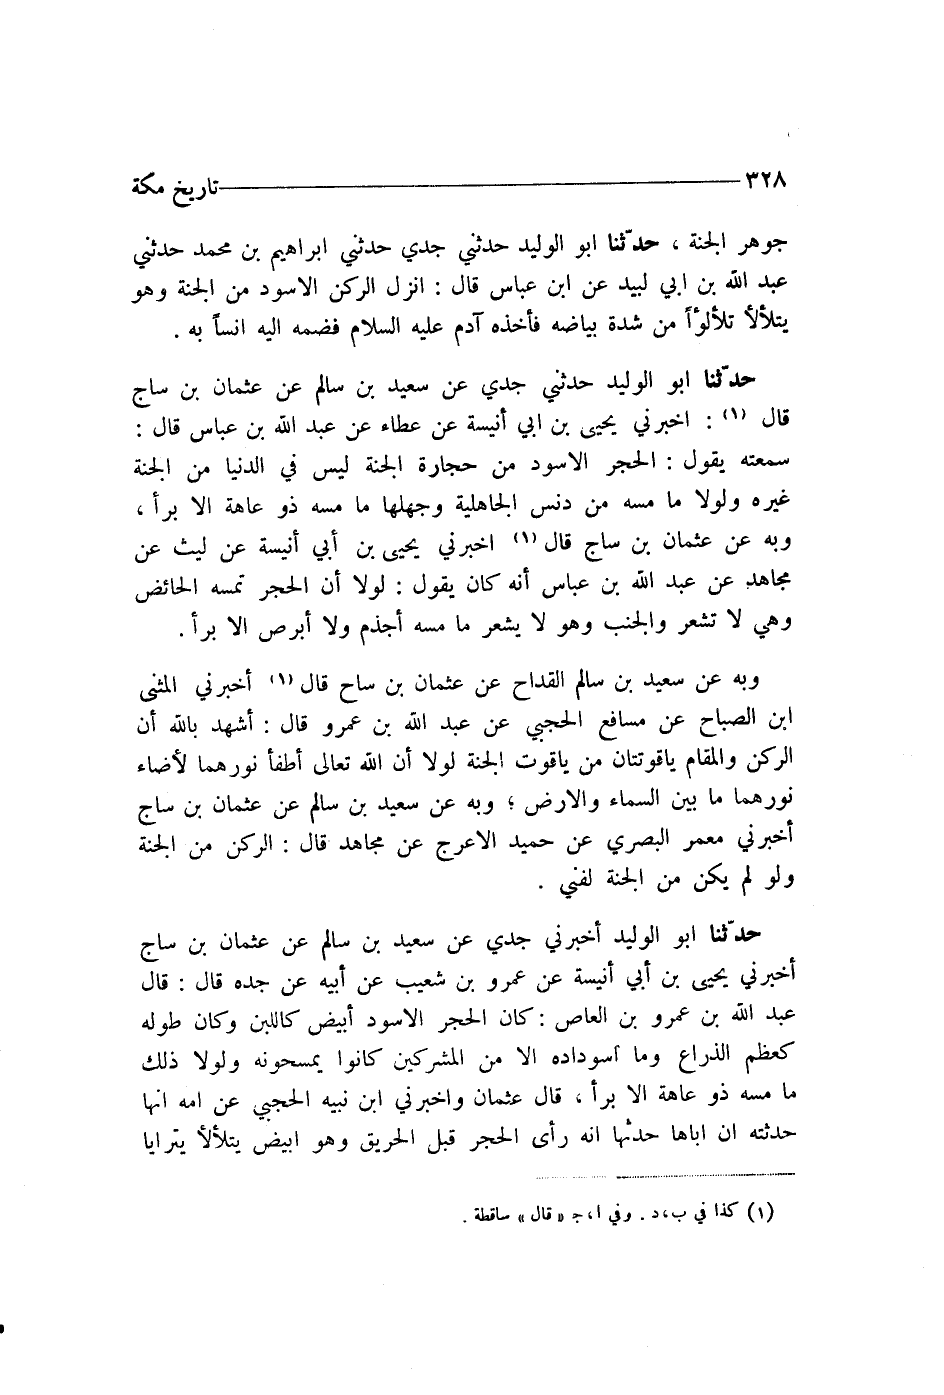 ٣٢٨ تاريخ مكة
جوهر الجنة ، حدّثنا ابو الوليد حدثني جدي حدثني ابراهيم بن محمد حدثني
عبد الله بن ابي لبيد عن ابن عباس قال : انزل الركن الاسود من الجنة وهو
يتلألأ تلألوءاً من شدة بياضه فأخذه آدم عليه السلام فضمه اليه انساً به .
حدّثنا ابو الوليد حدثني جدي عن سعيد بن سالم عن عثمان بن ساج
قال (١) : اخبرني يحيى بن ابي أنيسة عن عطاء عن عبد الله بن عباس قال :
سمعته يقول : الحجر الاسود من حجارة الجنة ليس في الدنيا من الجنة
غيره ولولا ما مسه من دنس الجاهلية وجهلها ما مسه ذو عاهة الا برأ ،
وبه عن عثمان بن ساج قال (١) اخبرني يحيى بن أبي أنيسة عن ليث عن
مجاهد عن عبد الله بن عباس أنه كان يقول : لولا أن الحجر تمسه الحائض
وهي لا تشعر والجنب وهو لا يشعر ما مسه أجذم ولا أبرص الا برأ .
وبه عن سعيد بن سالم القداح عن عثمان بن ساح قال (١) أخبرني المثنى
ابن الصباح عن مسافع الحجبي عن عبد الله بن عمرو قال : أشهد بالله أن
الركن والمقام ياقوتتان من ياقوت الجنة لولا أن الله تعالى أطفأ نورهما لأضاء
نورهما ما بين السماء والارض ؛ وبه عن سعيد بن سالم عن عثمان بن ساج
أخبرني معمر البصري عن حميد الاعرج عن مجاهد قال : الركن من الجنة
ولو لم يكن من الجنة لفني .
حدّثنا ابو الوليد أخبرني جدي عن سعيد بن سالم عن عثمان بن ساج
أخبرني يحيى بن أبي أنيسة عن عمرو بن شعيب عن أبيه عن جده قال : قال
عبد الله بن عمرو بن العاص : كان الحجر الاسود أبيض كاللبن وكان طوله
كعظم الذراع وما اسوداده الا من المشركين كانوا يمسحونه ولولا ذلك
ما مسه ذو عاهة الا برأ ، قال عثمان واخبرني ابن نبيه الحجبي عن امه انها
حدثته ان اباها حدثها انه رأى الحجر قبل الحريق وهو ابيض يتلألأ يترايا
(١) كذا في ب،د . وفي ا،ج « قال » ساقطة .